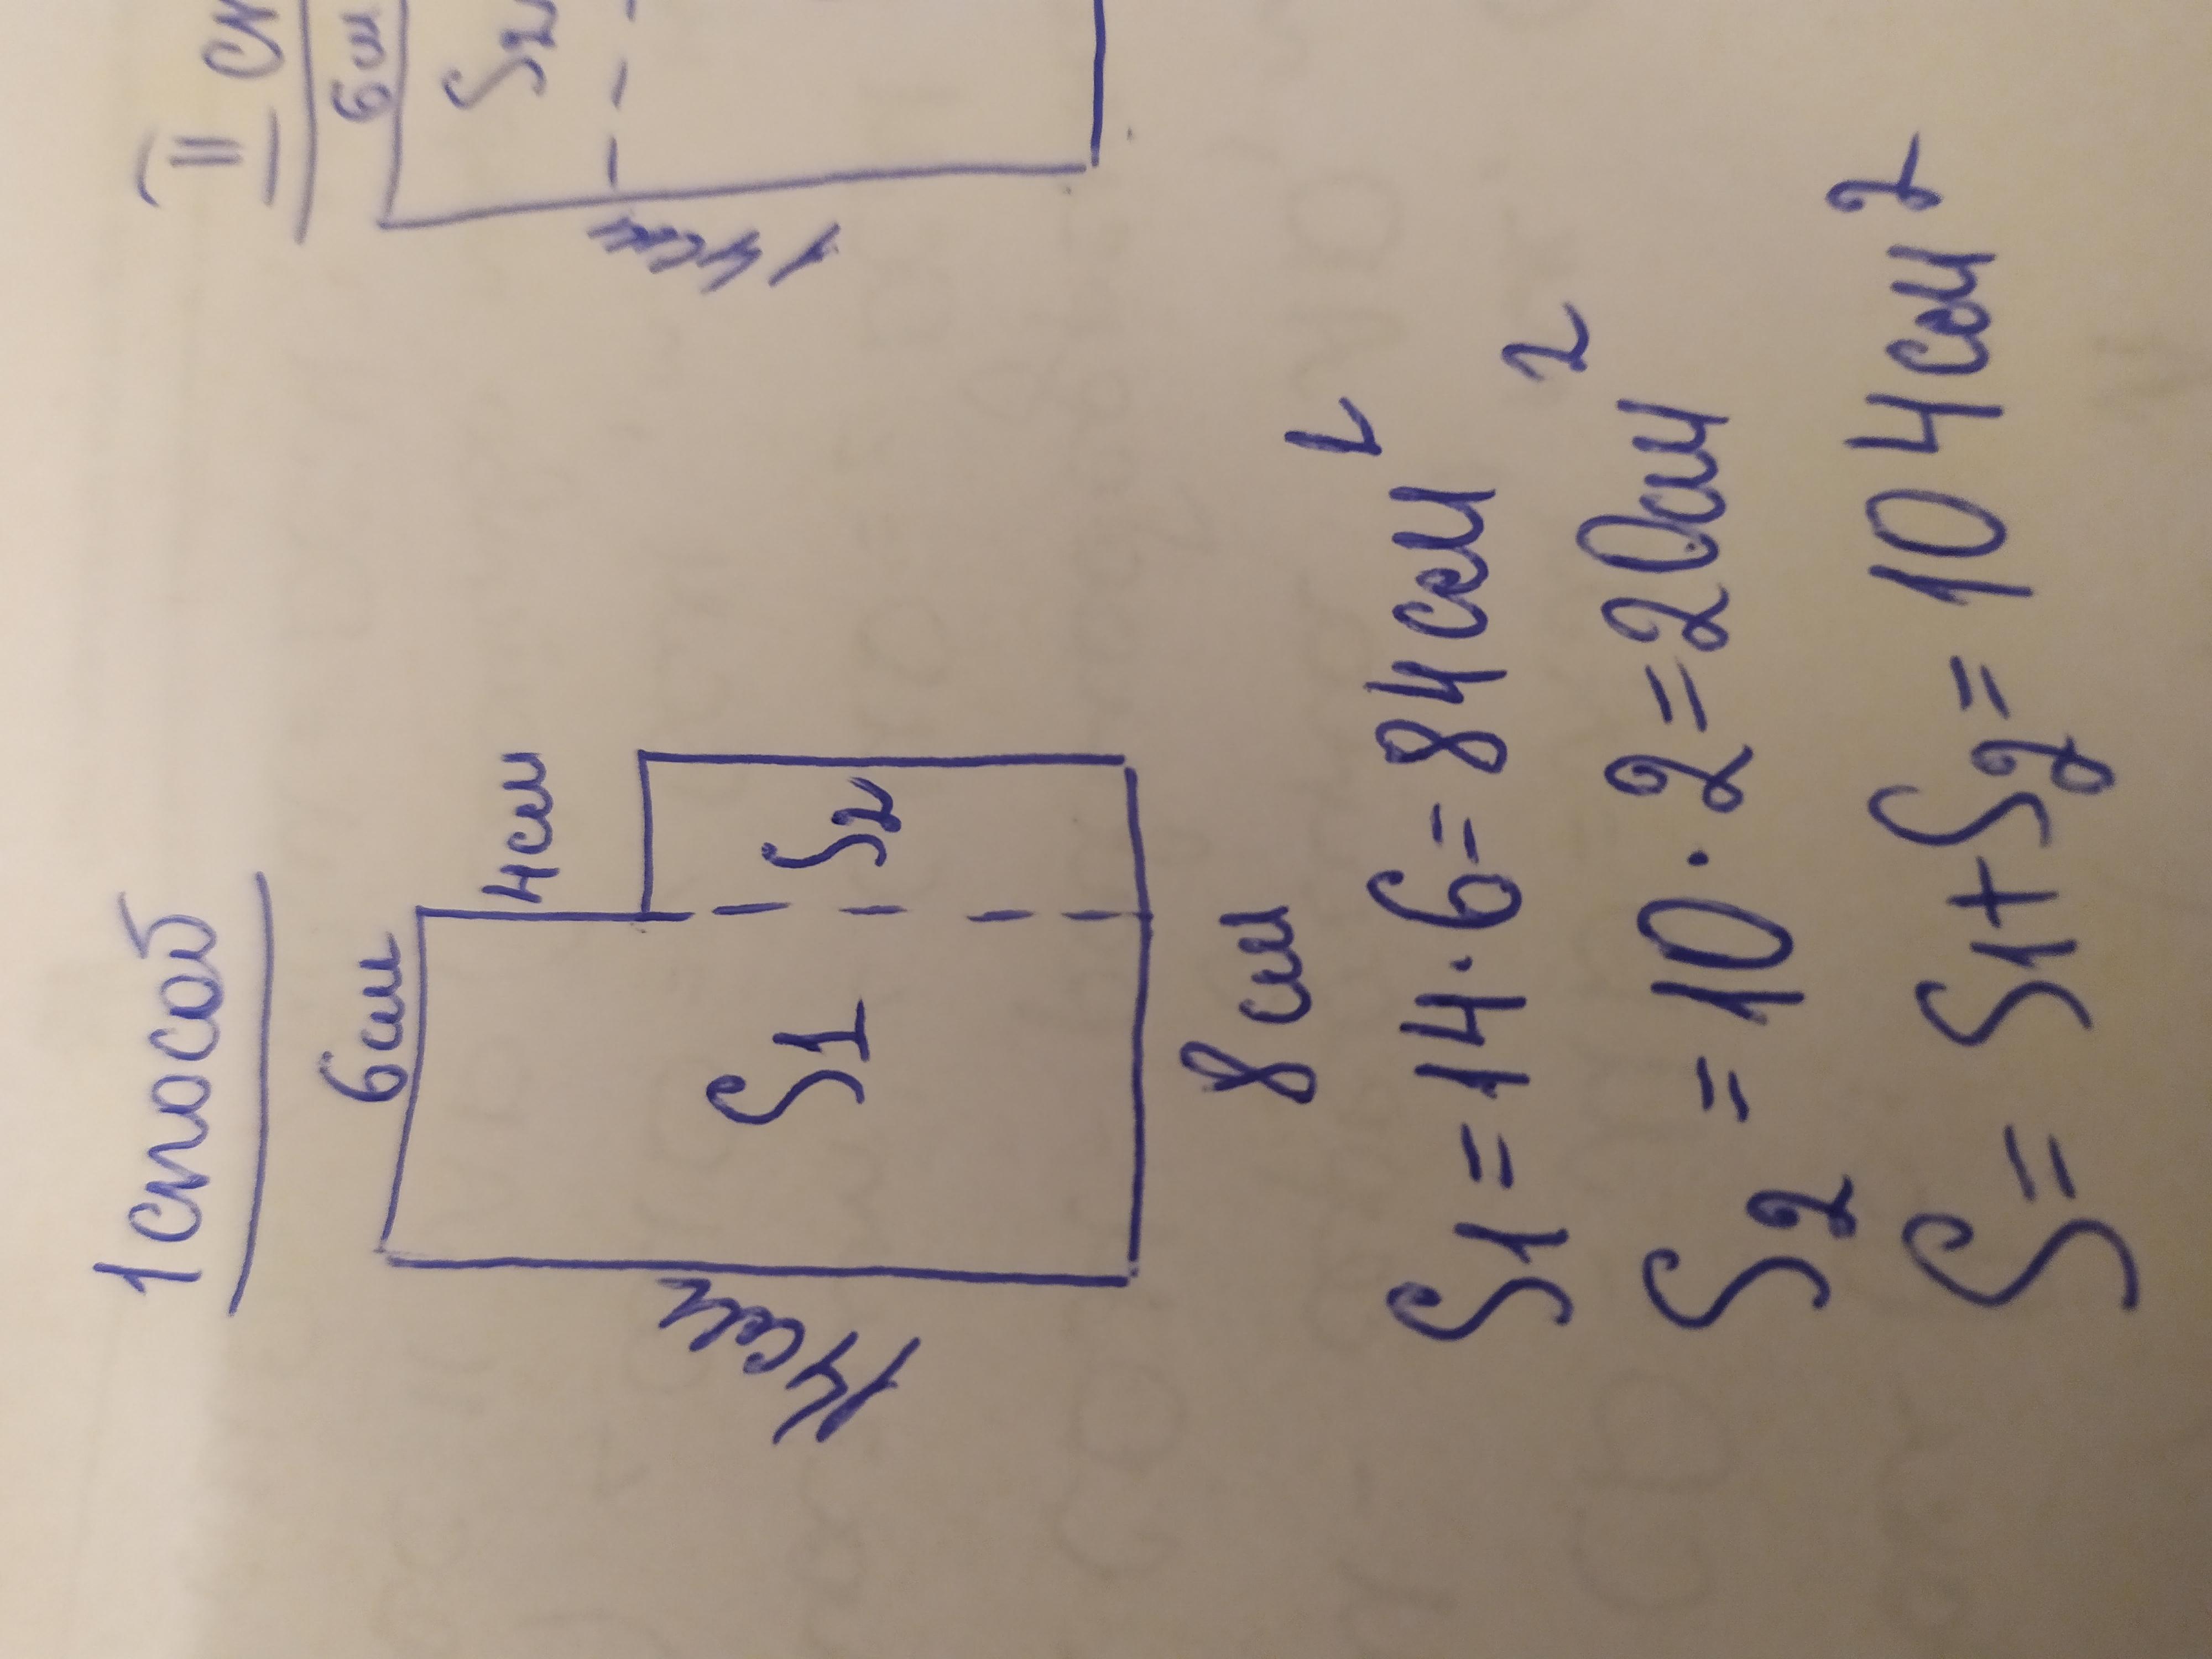 1 способ
6 см
4 см
14 см
S1
S2
8 см
S1 = 14 · 6 = 84 см²
S2 = 10 · 2 = 20 см²
S = S1 + S2 = 104 см²
II
6 см
S2
14 см